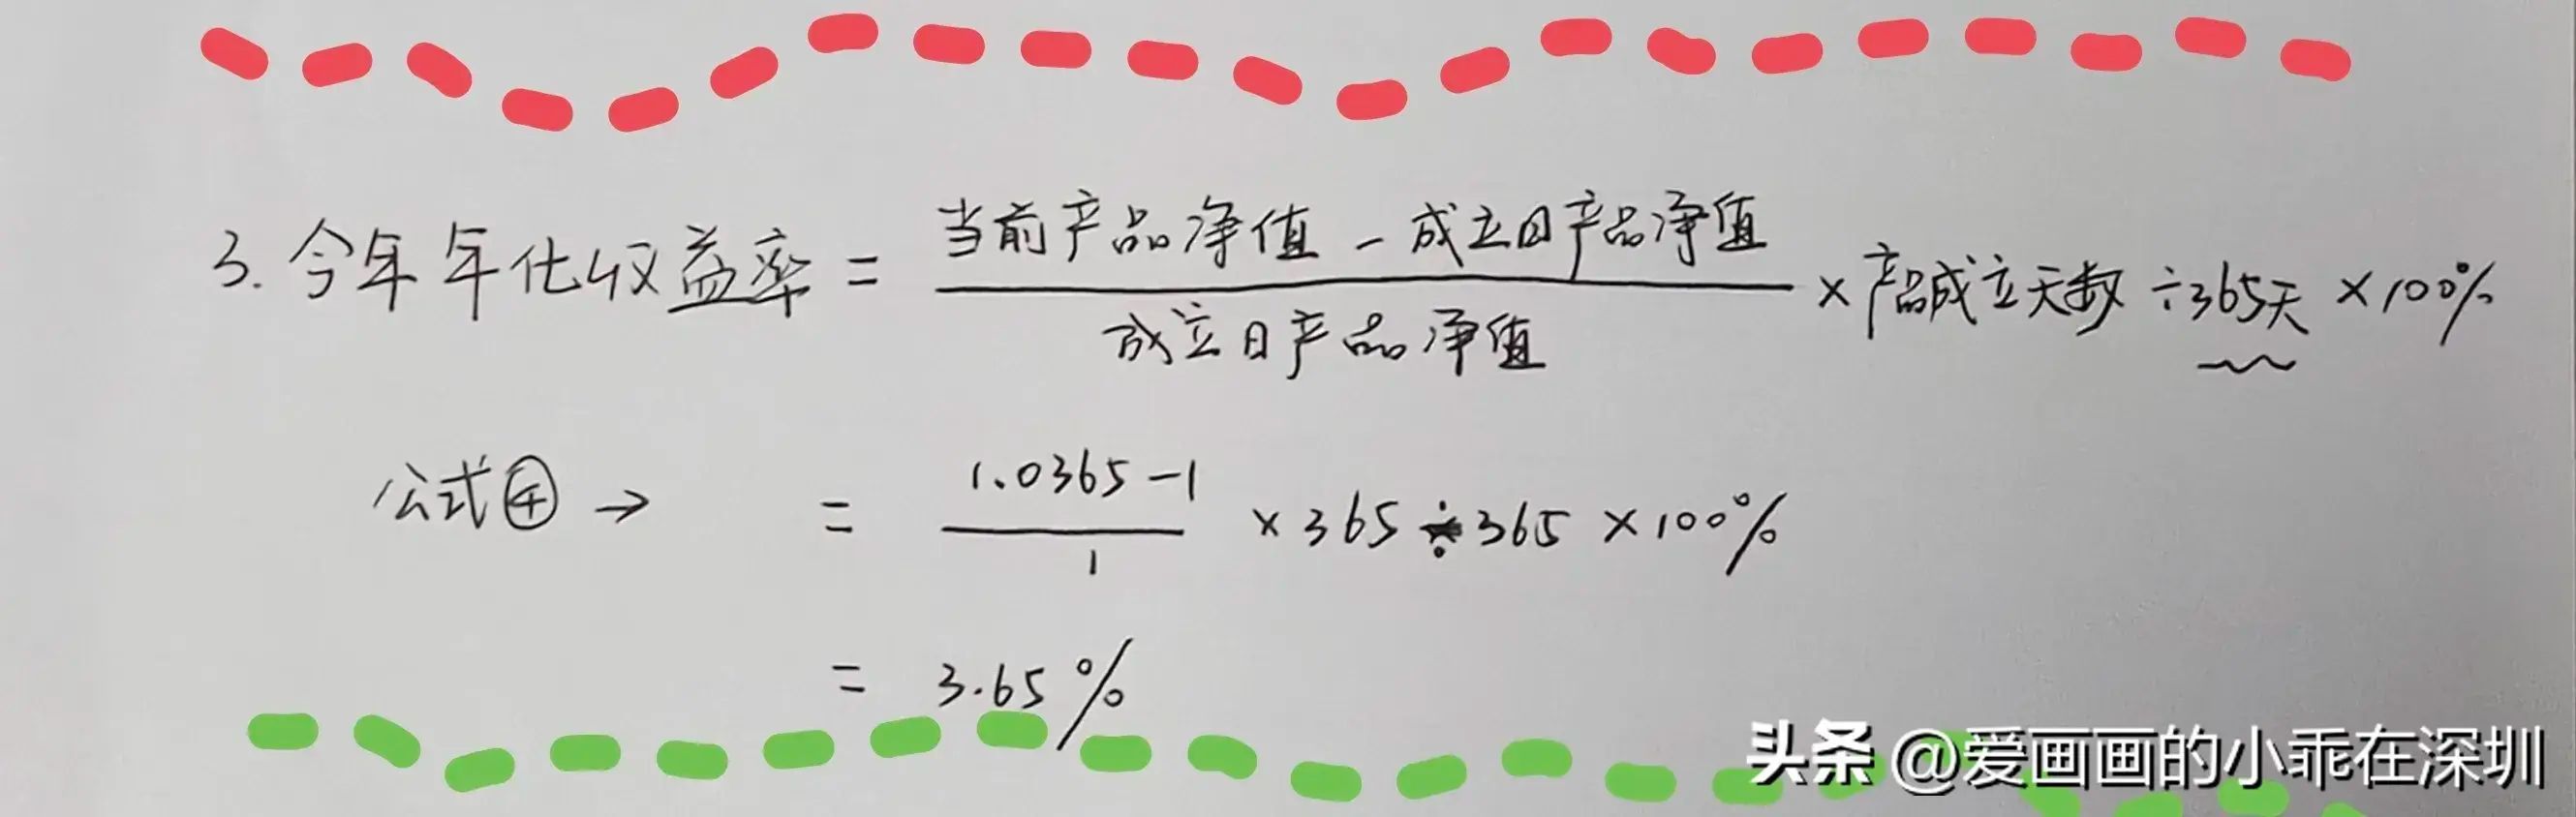 3. 今年年化收益率 = 当前产品净值 - 成立日产品净值 / 成立日产品净值 × 产品成立天数 ÷ 365天 × 100%
公式④ → = 1.0365 - 1 / 1 × 365 ÷ 365 × 100%
= 3.65%
头条 @爱画画的小乖在深圳